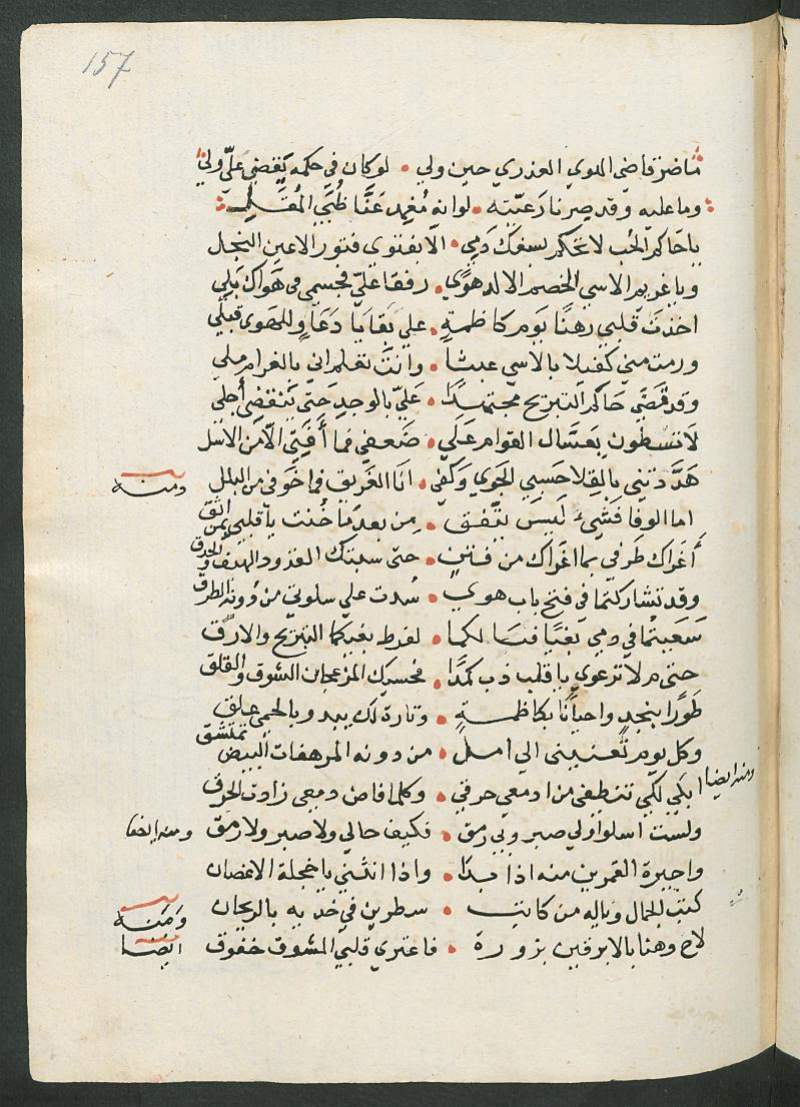 157
ما ضر قاضي الهوي العذري حين ولي • لو كان في حكمه يقضي عليّ ولي
وما عليه وقد صرنا رعيّته • لو انه مُغمد عنّا ظُبَي المُقَل
يا حاكم الحُب لا تحكم بسفك دَمِي • الّا بفتوي فتور الاعين النجل
ويا غريم الاسي الخصم الالد هوًي • رفقا عليّ فجسمي في هَواك بَلِي
اخذتَ قلبي رهنًا يَوم كاظمةٍ • علي بَقايَا دَعَاوٍ للهَوى قبلي
ورمت مني كفيلا بالاسي عبثا • وانتَ تعلم اني بالغرام ملي
وقد قَضَي حَاكم التبريح مجتهدًا • عَليّ بالوجدِ حتي ينقضي أجلي
لا تسطون بعَسّال القوام عَلَي • ضَعفي فما أفَتي الّا من الاسل
هَدَّدتني بالقِلا حسبي الجَوي وَكفي • انا الغريق فما خَوفي من البلل
ومنه
اما الوفا فَشيء لَيسَ يتّفق • مِن بعد مَا خُنت يا قلبي بمن اثق
أغراك طَرفي بما اغراك من فتنٍ • حتي سبتك القدود الهيف والحدق
وقد تشاركتما في فتح باب هوي • سُدت علي سلوتي من دُونه الطرق
سَعَيتما في دمي بَغيًا فنَالكما • لفرط بغيكما التبريح والارق
حتي م لا ترعوي يا قلب ذب كمَدًا • فحسبك المزعجان الشوق والقلق
طَورًا بنجدٍ واحيانًا بكاظمةٍ • وتارة لك يبدو بالحمي علق
وكل يوم تُعَنيني الي امل • من دونه المرهفات البيض تمتشق
ومنه ايضا
ابكي لكي تنطفي من ادمعي حرقي • وكلما فاض دمعي زادت الحرق
ولست اسلو ولي صبر وبي رمق • فكيف حالي ولا صبر ولا رمق
ومنه ايضا
واحيرة القمرين منه اذا بدَا • واذا انثني يا خجلة الاغصان
كتب الجمال وياله من كاتب • سطرين في خديه بالريحان
ومنه
ايضا
لاح وهنا بالابرقين بزورة • فاعتري قلبي المشوق خفوق